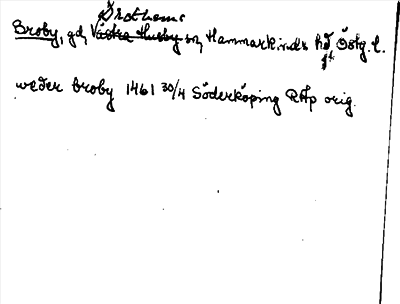 Drothems
Broby, gd, Västra Husby sn, Hammarkinds hd, Östg. l.
weder broby 1461 30/4 Söderköping RAp orig.